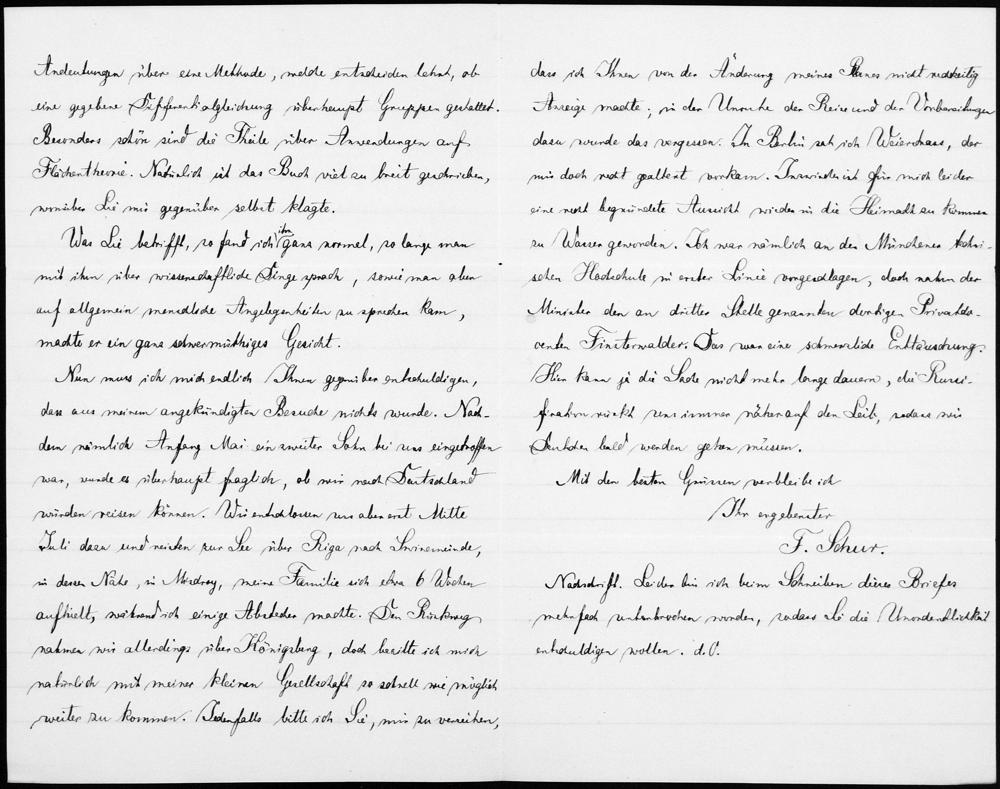 Andeutungen über eine Methode, welche entscheiden lehrt, ob
eine gegebene Differentialgleichung überhaupt Gruppen gestattet.
Besonders schön sind die Theile über Anwendungen auf
Flächentheorie. Natürlich ist das Buch viel zu breit geschrieben,
worüber Lie mir gegenüber selbst klagte.
Was Lie betrifft, so fand ich ihn ganz normal, so lange man
mit ihm über wissenschaftliche Dinge sprach, sowie man aber
auf allgemein menschliche Angelegenheiten zu sprechen kam,
machte er ein ganz schwermüthiges Gesicht.
Nun muss ich mich endlich Ihnen gegenüber entschuldigen,
dass aus meinem angekündigten Besuche nichts wurde. Nach-
dem nämlich Anfang Mai ein zweiter Sohn bei uns eingetroffen
war, wurde es überhaupt fraglich, ob wir nach Deutschland
würden reisen können. Wir entschlossen uns aber erst Mitte
Juli dazu und reisten zur See über Riga nach Swinemünde,
in dessen Nähe, in Misdroy, meine Familie sich etwa 6 Wochen
aufhielt, während ich einige Abstecher machte. Den Rückweg
nahmen wir allerdings über Königsberg, doch beeilte ich mich
natürlich mit meiner kleinen Gesellschaft so schnell wie möglich
weiter zu kommen. Jedenfalls bitte ich Sie, mir zu verzeihen,
dass ich Ihnen von der Änderung meines Planes nicht rechtzeitig
Anzeige machte; in der Unruhe der Reise und der Vorbereitungen
dazu wurde das vergessen. In Berlin sah ich Weierstrass, der
mir doch recht gealtert vorkam. Inzwischen ist für mich leider
eine recht begründete Aussicht wieder in die Heimath zu kommen
zu Wasser geworden. Ich war nämlich an der Münchener techni-
schen Hochschule in erster Linie vorgeschlagen, doch nahm der
Minister den an dritter Stelle genannten dortigen Privatdo-
centen Finsterwalder. Das war eine schmerzliche Enttäuschung.
Hier kann ja die Sache nicht mehr lange dauern, die Russi-
fikation rückt uns immer näher auf den Leib, sodass wir
Deutschen bald werden gehen müssen.
Mit den besten Grüssen verbleibe ich
Ihr ergebenster
F. Schur.
Nachschrift. Leider bin ich beim Schreiben dieses Briefes
mehrfach unterbrochen worden, sodass Sie die Unordentlichkeit
entschuldigen wollen. d. O.